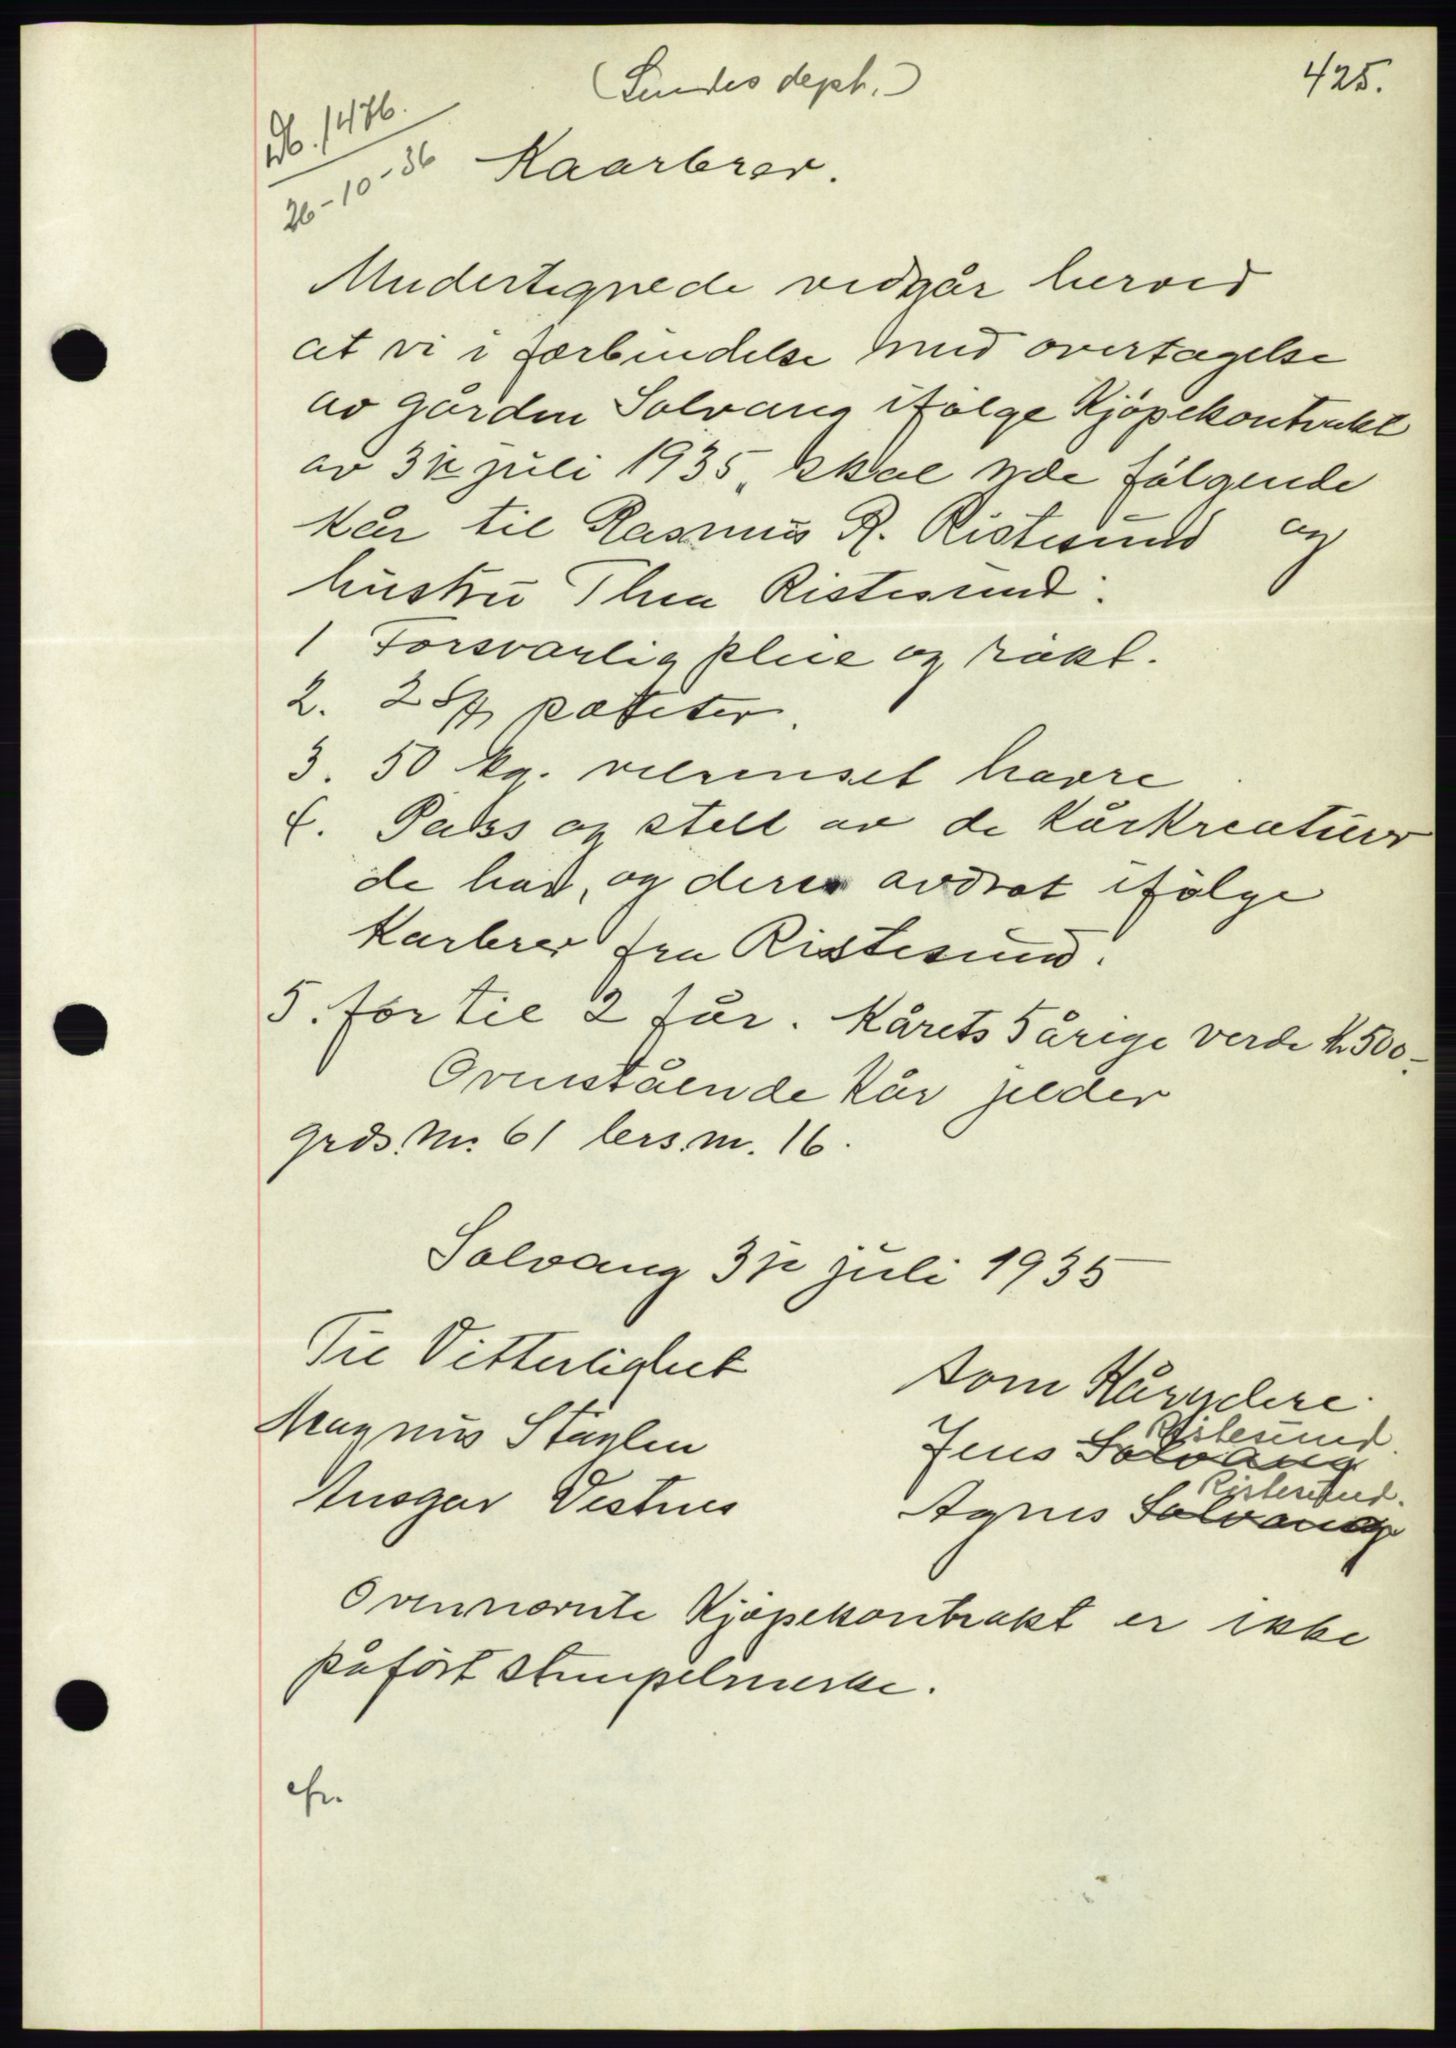 (Sendes dept.)
425.
Db. 1476.
26-10-36
Kaarbrev.
Undertegnede vedgår herved
at vi i forbindelse med overtagelse
av gården Solvang ifölge Kjöpekontrakt
av 31te juli 1935, skal yde fölgende
kår til Rasmus R. Ristesund og
hustru Thea Ristesund:
1 Forsvarlig pleie og rökt.
2. 2 poteter.
3. 50 kg. velrenset havre
4. Pass og stell av de kårkreaturer
de har, og deres avdrot ifölge
Karbrev fra Ristesund.
5. for til 2 får. Kårets 5 årige verde kr 500,-
Ovenstående kår jelder
grds. Nr. 61 bers. nr. 16.
Solvang 31te juli 1935
Til Vitterlighet
Som Kårydere.
Magnus Støylen
Jens Solvang Ristesund.
Ansgar Vestnes
Agnes Solvang Ristesund.
Ovennevnte Kjöpekontrakt er ikke
påfört stempelmerke.